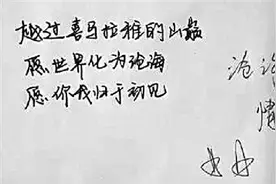 越过喜马拉雅的山巅
愿世界化为沧海
愿你我归于初见